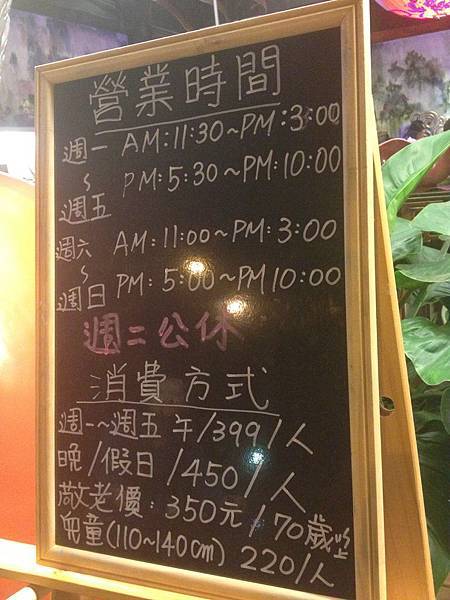 營業時間
週一 AM:11:30~PM:3:00
~ PM:5:30~PM:10:00
週五
週六 AM:11:00~PM:3:00
~
週日 PM:5:00~PM10:00
週二公休
消費方式
週一~週五 午/399/人
晚/假日/450/人
敬老價:350元/70歲以上
兒童(110~140cm) 220/人